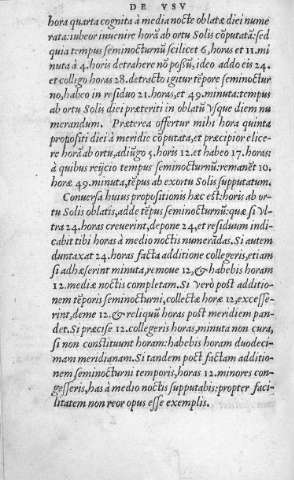 DE VSV
hora quarta cognita à media nocte oblatæ diei nume
rata: iubeor inuenire horā ab ortu Solis cōputatā: sed
quia tempus seminocturnū scilicet 6, horas et 11. mi
nuta à 4. horis detrahere nō possū, ideo addo eis 24.
et colligo horas 28. detracto igitur tēpore seminoctur
no, habeo in residuo 21. horas, et 49. minuta: tempus
ab ortu Solis diei præteriti in oblatū vsque diem nu
merandum. Præterea offertur mihi hora quinta
propositi diei à meridie cōputata, et præcipior elice-
re horā ab ortu, adiūgo 5. horis 12. et habeo 17. horas:
à quibus reijcio tempus seminocturnū: remanēt 10.
horæ 49. minuta, tēpus ab exortu Solis supputatum.
Conuersa huius propositionis hæc est: horis ab or
tu Solis oblatis, adde tēpus seminocturnū: quæ si vl-
tra 24. horas creuerint, depone 24, et residuum indi-
cabit tibi horas à medio noctis numerādas. Si autem
duntaxat 24. horas facta additione collegeris, etiam
si adhæserint minuta, remoue 12, & habebis horam
12. mediæ noctis completam. Si verò post additio-
nem tēporis seminocturni, collectæ horæ 12, excesse-
rint, deme 12. & reliquū horas post meridiem pan-
det. Si præcise 12. collegeris horas, minuta non cura,
si non constituunt horam: habebis horam duodeci-
mam meridianam. Si tandem post factam additio-
nem seminocturni temporis, horas 12. minores con-
gesseris, has à medio noctis supputabis: propter faci-
litatem non reor opus esse exemplis.